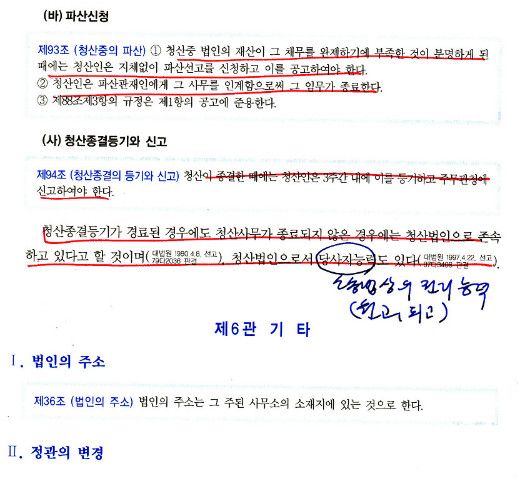 (바) 파산신청
제93조 (청산중의 파산) ① 청산중 법인의 재산이 그 채무를 완제하기에 부족한 것이 분명하게 된
때에는 청산인은 지체없이 파산선고를 신청하고 이를 공고하여야 한다.
② 청산인은 파산관재인에게 그 사무를 인계함으로써 그 임무가 종료한다.
③ 제88조제3항의 규정은 제1항의 공고에 준용한다.
(사) 청산종결등기와 신고
제94조 (청산종결의 등기와 신고) 청산이 종결한 때에는 청산인은 3주간 내에 이를 등기하고 주무관청에
신고하여야 한다.
청산종결등기가 경료된 경우에도 청산사무가 종료되지 않은 경우에는 청산법인으로 존속
하고 있다고 할 것이며(대법원 1980.4.8. 선고 79다2036 판결), 청산법인으로서 당사자능력도 있다(대법원 1997.4.22. 선고 97다3408 판결).
소송법상의 권리능력
(원고, 피고)
제6관 기 타
Ⅰ. 법인의 주소
제36조 (법인의 주소) 법인의 주소는 그 주된 사무소의 소재지에 있는 것으로 한다.
Ⅱ. 정관의 변경